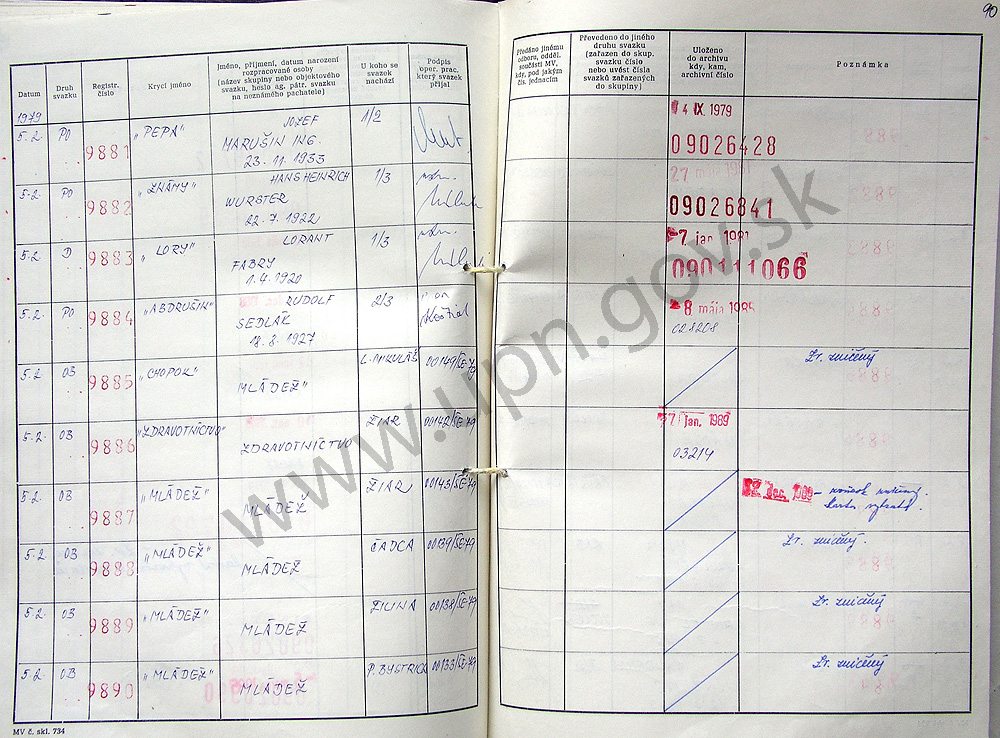 90
Datum
Druh svazku
Registr. číslo
Krycí jméno
Jméno, příjmení, datum narození
rozpracované osoby
(název skupiny nebo objektového
svazku, heslo ag. pátr. svazku
na neznámého pachatele)
U koho se
svazek
nachází
Podpis
oper. prac.
který svazek
přijal
Předáno jinému
odboru, odděl.
součásti MV,
kdy, pod jakým
čís. jednacím
Převedeno do jiného
druhu svazku
(zařazen do skup.
svazku číslo
nebo uvést čísla
svazků zařazených
do skupiny)
Uloženo
do archivu
kdy, kam,
archivní číslo
Poznámka
1979
5.2. PO 9881 "PEPA" JOZEF 1/2
MARUŠIN ING.
23. 11. 1933
4 IX. 1979
09026428
5.2. PO 9882 "ZNÁMY" HANS HEINRICH 1/3
WURSTER
22. 7. 1922
27 1981
09026841
5.2. D 9883 "LORY" LORANT 1/3
FABRY
1. 4. 1920
7 jan. 1981
090111066
5.2. PO 9884 "ABDRUŠIN" RUDOLF 2/3
SEDLÁK
18. 8. 1927
8 mája 1985
028208
5.2 OB 9885 "CHOPOK" MLÁDEŽ" L. MIKULÁŠ 00149/ŠE-79
Zv. zničený
5.2. OB 9886 "ZDRAVOTNÍCTVO" ZDRAVOTNÍCTVO ŽIAR 00142/ŠE-79
jan. 1989
03214
5.2 OB 9887 "MLÁDEŽ" MLÁDEŽ ŽIAR 00143/ŠE-79
dec. 1989 -
5.2 OB 9888 "MLÁDEŽ" MLÁDEŽ ČADCA 00139/ŠE-79
Zv. zničený.
5.2. OB 9889 "MLÁDEŽ" MLÁDEŽ ŽILINA 00138/ŠE-79
Zv. zničený
5.2. OB 9890 "MLÁDEŽ" MLÁDEŽ P. BYSTRICA 00133/ŠE-79
Zv. zničený
MV č. skl. 734
www.upn.gov.sk